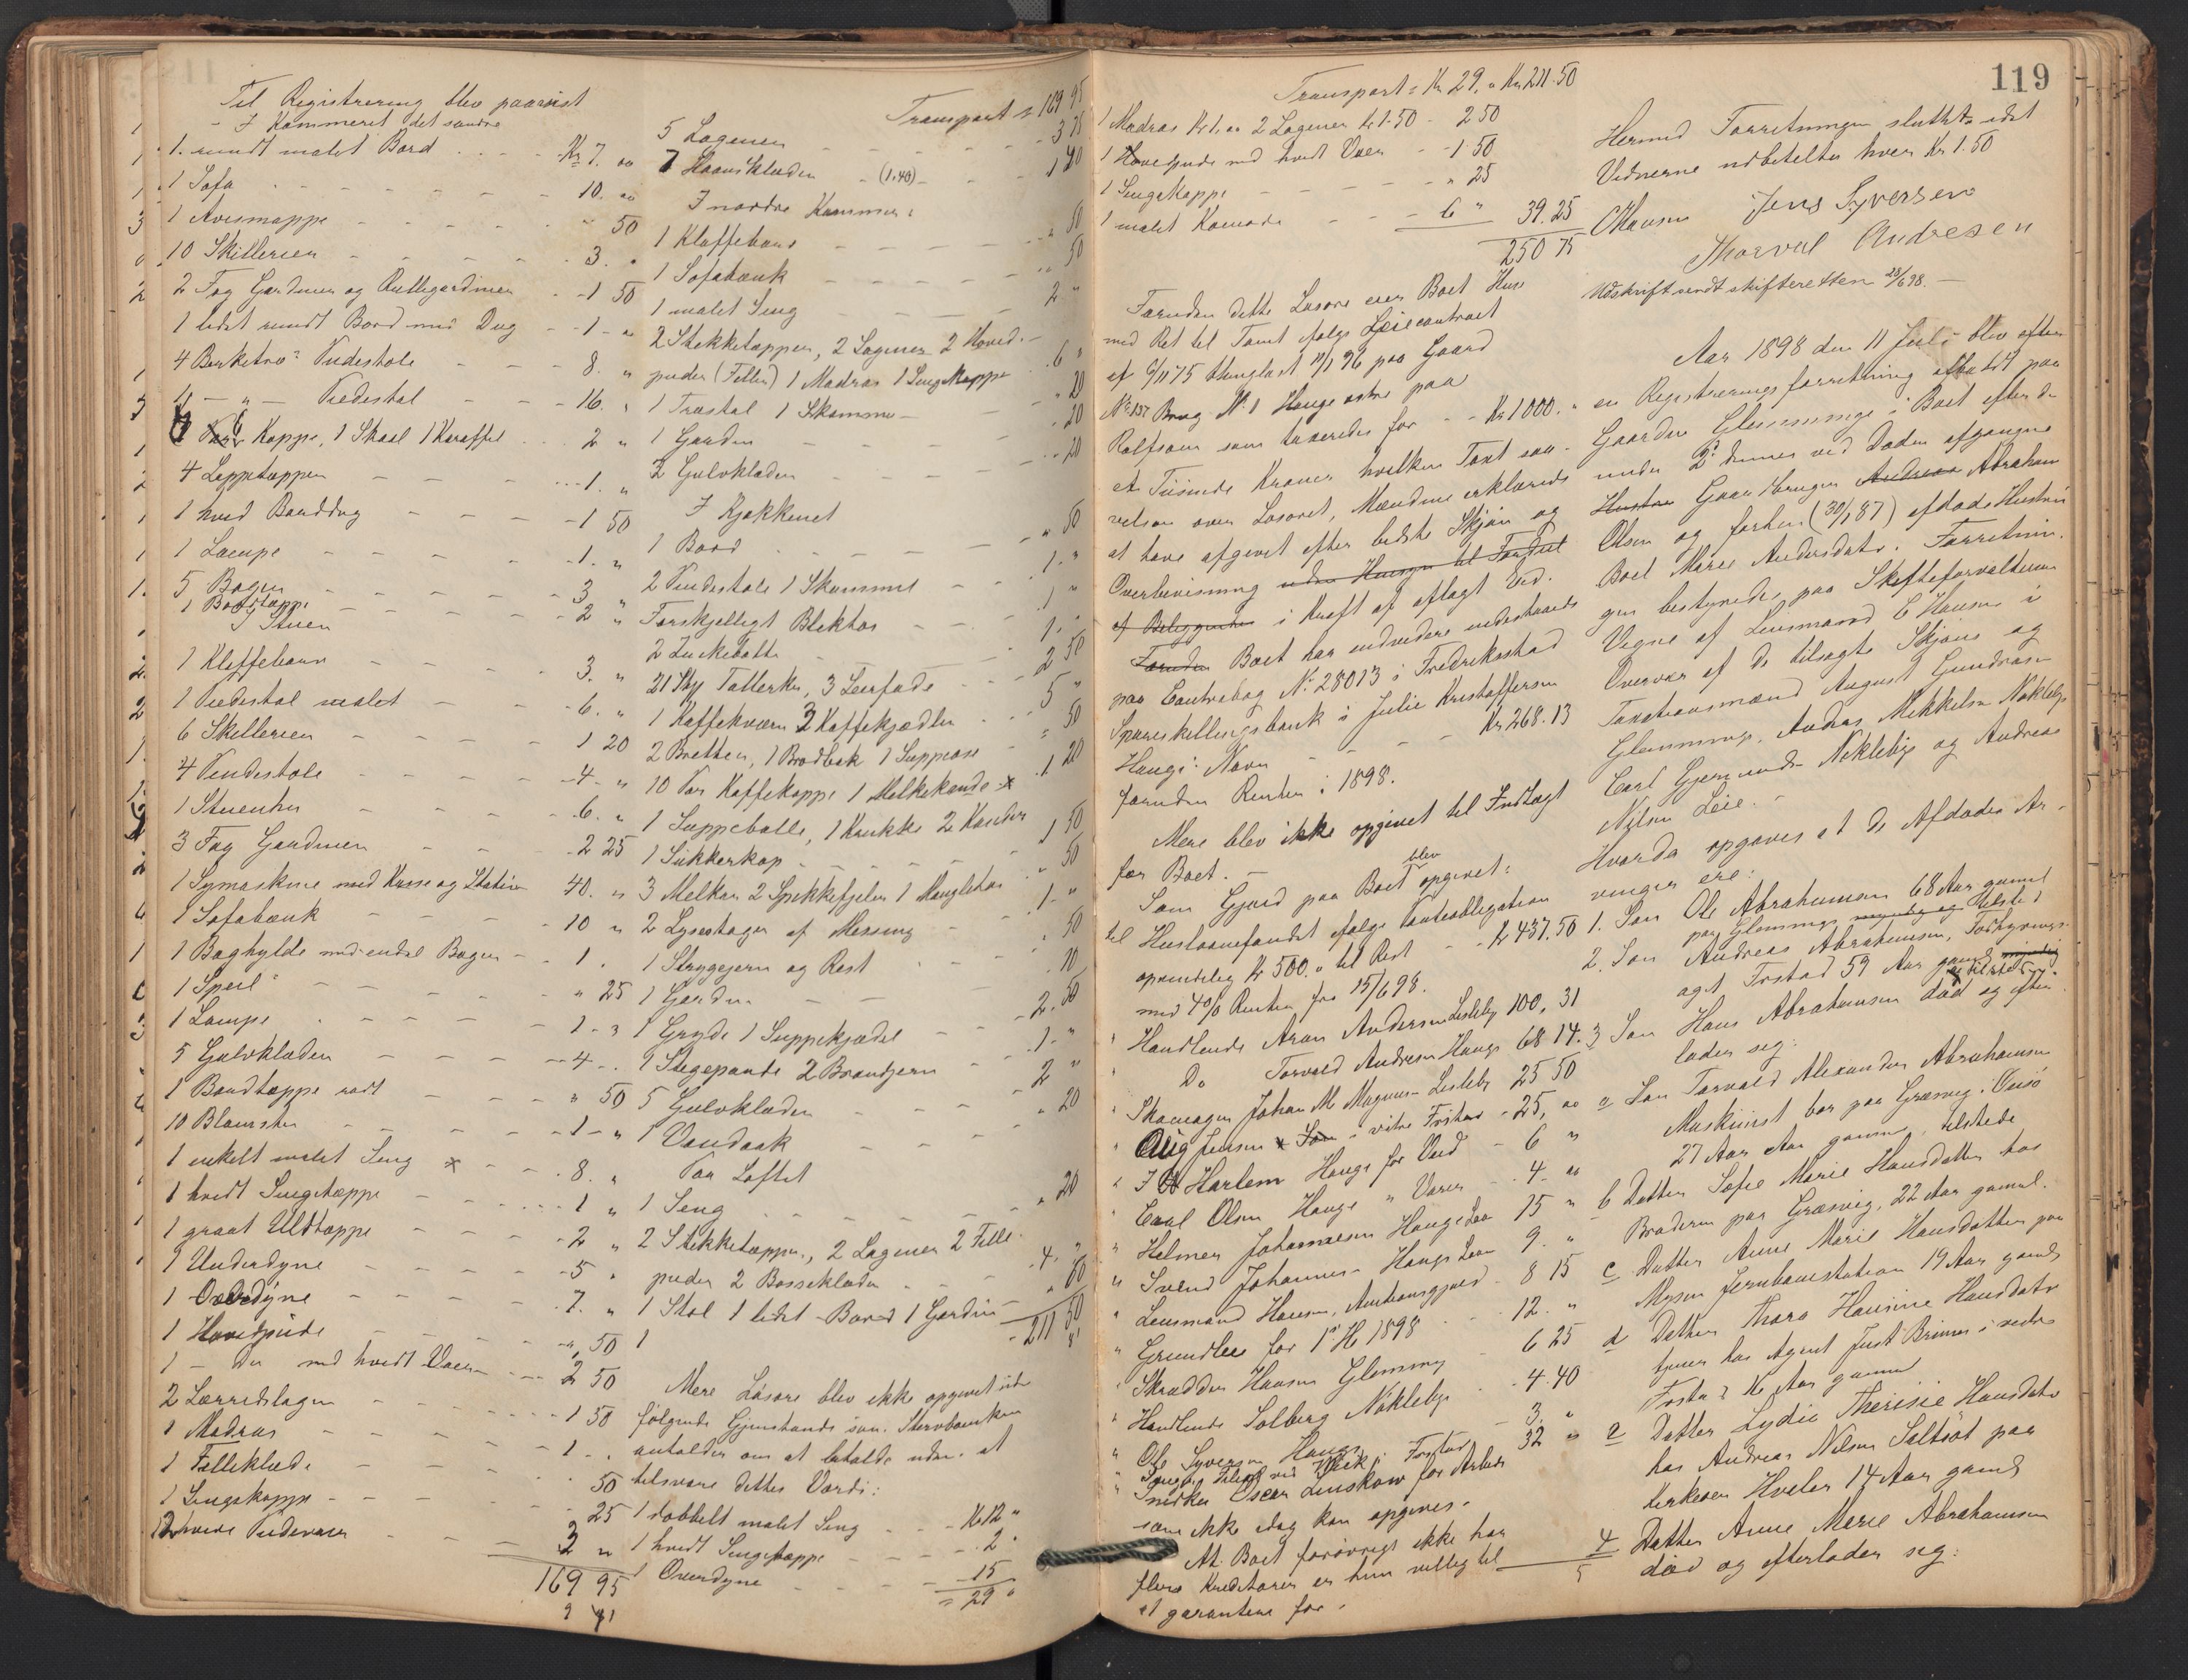 Til Registrering blev paavist
I Kammeret det søndre
1. rundt malet Bord - - - Kr 7. "
1 Sofa - - - 10. "
1 Avismappe - - - " 50
10 Skillerier - - - 3. "
2 Fag Gardiner og Rullegardiner - 1 50
1 lidet rundt Bord med Dug - 1 - "
4 Birketræs Pindestole - - 8. "
4 - " - Pindestol - - 16. "
6 Kopper, 1 Skaal 1 Karaffel - 2 "
4 Teppetapper - - 1. "
1 hvid Borddug - - 1 50
1 Lampe - - 1. "
5 Bøger - - 3 "
1 Bordtæppe - - 2 "
I Stuen
1 Klaffebord - - 3. "
1 Pindestol malet - - 6. "
6 Skillerier - - 1 20
4 Pindestole - - 4 - "
1 Stueuhr - - 6. "
3 Fag Gardiner - - 2 25
1 Symaskine med Kasse og Stativ 40. "
1 Sofabænk - - 10 "
1 Boghylde med endel Bøger - 1 .
1 Speil - - " 25
1 Lampe - - 1 - "
5 Gulvklæder - - 4 - .
1 Bordtæppe rødt - - " 50
10 Blomster - - 1 - "
1 enkelt malet Seng - - 8. "
1 hvidt Sengetæppe - - 1 "
1 graat Uldtæppe - - 2 "
1 Underdyne - - 5 "
1 Overdyne - - 7. "
1 Hovedpude - - " 50
1 - Do med hvidt Vaar - 2 50
2 Lærredslagen - - 1 50
1 Madras - - 1 - .
1 Fælleklæde - - 50
1 Sengekappe - - 25
2 hvide Pudevaar - - 2 "
169 95
Transport = 169 95
5 Lagener - - 3 75
7 Haandklæder - (1.40) - 1 20
I nordre Kammer:
1 Klaffebord - - " 50
1 Sofabænk - - " 50
1 malet Seng - - 2 "
2 Stikketæpper, 2 Lagener 2 Hoved-
puder (Felle) 1 Madras 1 Sengekappe 6 "
1 Træstol 1 Skammel - " 20
1 Gardin - - 20
2 Gulvklæder - - 20
I Kjøkkenet
1 Bord - - " 50
2 Pindestole 1 Skammel - 1. "
Forskjelligt Bliktøi - 1 "
2 Zinkebøtte - 1. "
21 Stk Tallerken, 3 Leerfade - 2 50
1 Kaffekværn 2 Kaffekjedler - 5 "
2 Bretter, 1 Brødbak 1 Suppeøse " 50
10 Par Kaffekopper 1 Melkekande 1 20
1 Suppebolle, 1 Krukke 2 Kander
1 Sukkerkop - - 1 50
3 Melkær 2 Spikkefjeler 1 Mangletræ " 50
2 Lysestager af Messing - 1 - "
1 Strygejern og Rist - " 50
1 Gardin - - 10
1 Gryde 1 Suppekjedel - 2. 50
1 Stegepande 2 Brandjern - 1 - "
5 Gulvklæder - - 2 "
1 Vandask - " 20
Paa Loftet
1 Seng - - " 20
2 Stikketæpper, 2 Lagener 2 Felle
puder 2 Bosseklæder - 4. "
1 Stol 1 lidet Bord 1 Gardin - " 60
211 50
Mere Løsøre blev ikke opgivet uden
følgende Gjenstande som Stervboenken
anholder om at beholde uden at
tilsvare dettes Værdi:
1 dobbelt malet Seng - - Kr 12 "
1 hvidt Sengetæppe - - 2 "
1 Overdyne - - 15
= 29 "
119
Transport = Kr 29. " Kr 211.50
1 Madras Kr 1. " 2 Lagener Kr 1.50 - 2 50
1 Hovedpude med hvidt Vaar - 1.50
1 Sengekappe - - " 25
1 malet Komode - - 6 " 39.25
250 75
Foruden dette Løsøre eier Boet Huse
med Ret til Tomt ifølge Leiecontract
af 9/11 75 thinglæst 11/1 76 paa Gaard
No 137 Brug No 1 Hauge østre paa
Rolfsøen som taxeredes for - Kr 1000. "
et Tusinde Kroner hvilken Taxt saa-
velsom over Løsøret, Mændene erklærede
at have afgivet efter bedste Skjøn og
Overbevisning uden Hensyn til Fordeel
af Beliggenhed i Kraft af aflagt Eed.
Foruden Boet har endvidere indestaaende
paa Contrabog No 28013 i Fredrikstad
Spareskillingsbank i Julie Kristoffersen
Hauges Navn - - - Kr 268.13
foruden Renter i 1898.
Mere blev ikke opgivet til Indtægt
for Boet. -
Som Gjæld paa Boet blev opgivet:
til Huslaanefondet ifølge Panteobligation
oprindelig Kr 500. " til Rest - Kr 437.50
med 4% Renter fra 15/6 98.
" Handlende Aron Andersen Lisleby 100, 31
" Do Torvald Andresen Hauge 68 14.
" Skomager Johan M Magnusen Lisleby 25 50
" Aug Jensen vitre Frstad - 25, "
" I Harlem Hauge for Ved - 6 "
" Carl Olsen Hauge " Varer - 4. "
" Helmer Johannesen Hauge Laan 15 "
" Svend Johannes- Hauge Laan 9. "
" Lensmand Hansen, Auktionsgjæld - 8 15
" Grundleie for 1ste H 1898 - 12. "
" Skrædder Hansen Glemmen - 6 25
" Handlende Solberg Nøkleby - 4.40
" Ole Syversen Hauge - 3. "
" Snedker Oscar Linskow for Arbeide
som ikke idag kan opgives.
At Boet forøvrigt ikke har
flere Kreditorer er hun villig til
at garantere for.
Hermed Forretningen sluttet idet
Vidnerne udbetaltes hver Kr 1.50
CHansen Jens Syversen
Thorval Andresen
Udskrift sendt skifteretten 28/6 98. -
Aar 1898 den 11 Juli blev efter
en Registreringsforretning afholdt paa
Gaarden Glemminge i Boet efter de
under 2' dennes ved Døden afgangne
Hustru Gaardbruger Andreas Abraham
Olsen og forhen (30/1 87) afdøde Hustru
Boel Marie Andersdatr. Forretnin-
gen bestyredes paa Skifteforvalterens
Vegne af Lensmand C Hansen i
Overvær af de tilsagte Skjøns og
Taxationsmænd August Gundersen
Glemminge, Andreas Mikkelsen Nøkleby
Carl Gjermundsen Nøkleby og Andreas
Nilsen Leie. -
Hvorda opgaves at de Afdødes Ar-
vinger ere:
1. Søn Ole Abrahamsen 68 Aar gammel
paa Glemminge myndig og tilsted
2. Søn Andreas Abrahamsen, Forhyrings-
agt Frstad 59 Aar gaml myndig
og tilstede
3 Søn Hans Abrahamsen død og efter-
lader sig:
a Søn Torvald Alexander Abrahamsen
Maskinist bor paa Græsvig, Onsø
27 Aar gammel, tilstede
b Datter Sofie Marie Hansdatter hos
Broderen paa Græsvig, 22 Aar gammel.
c Datter Anne Marie Hansdatter paa
Mysen Jernbanestation 19 Aar gaml
d Datter Thora Hansine Hansdatr
tjener hos Agent Just Brinner i vedre
Frstad 16 Aar gammel
e Datter Lydie Therisie Hansdatr
hos Andreas Nilsen Saltbøt paa
Kirkeøen Hvaler 14 Aar gaml
4 Datter Anne Marie Abrahamsen
død og efterlader sig: